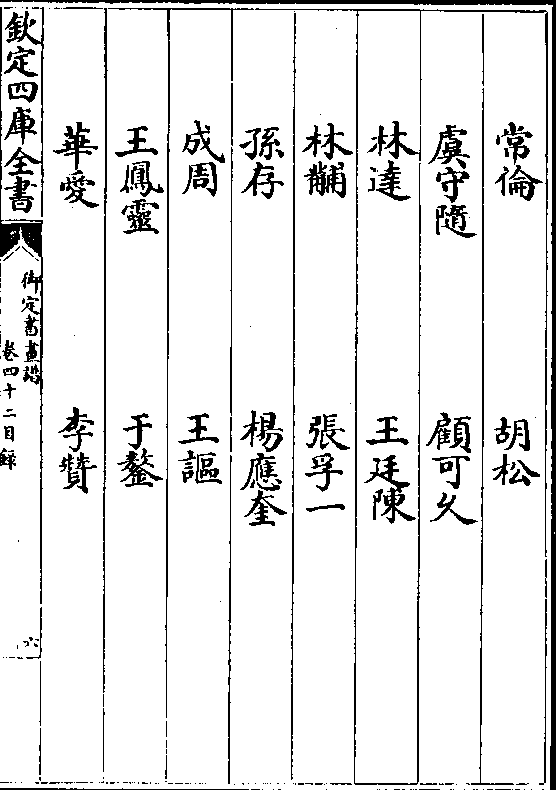 常倫　胡松
虞守隨　顧可久
林達　王廷陳
林黼　張孚一
孫存　楊應奎
成周　王謳
王鳳靈　于鏊
華愛　李贊
欽定四庫全書
御定書畫譜
卷四十二目錄
六